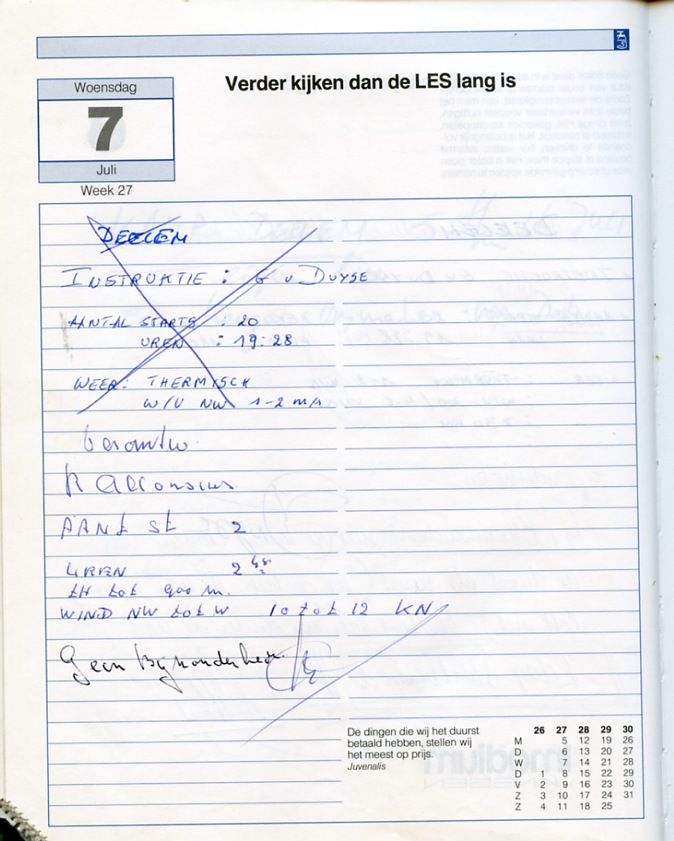 Verder kijken dan de LES lang is
Woensdag
7
Juli
Week 27
DEELEN
INSTRUKTIE : G v DUYSE
AANTAL STARTS : 20
UREN : 19:28
WEER: THERMISCH
W/V NW 1-2 m/s
R Alconsius
AANT St 2
UREN 2 45
tH tot 900 m.
WIND NW tot W 10 tot 12 KN
Geen Bijzonderheden.
De dingen die wij het duurst
betaald hebben, stellen wij
het meest op prijs.
Juvenalis
26 27 28 29 30
M 5 12 19 26
D 6 13 20 27
W 7 14 21 28
D 1 8 15 22 29
V 2 9 16 23 30
Z 3 10 17 24 31
Z 4 11 18 25